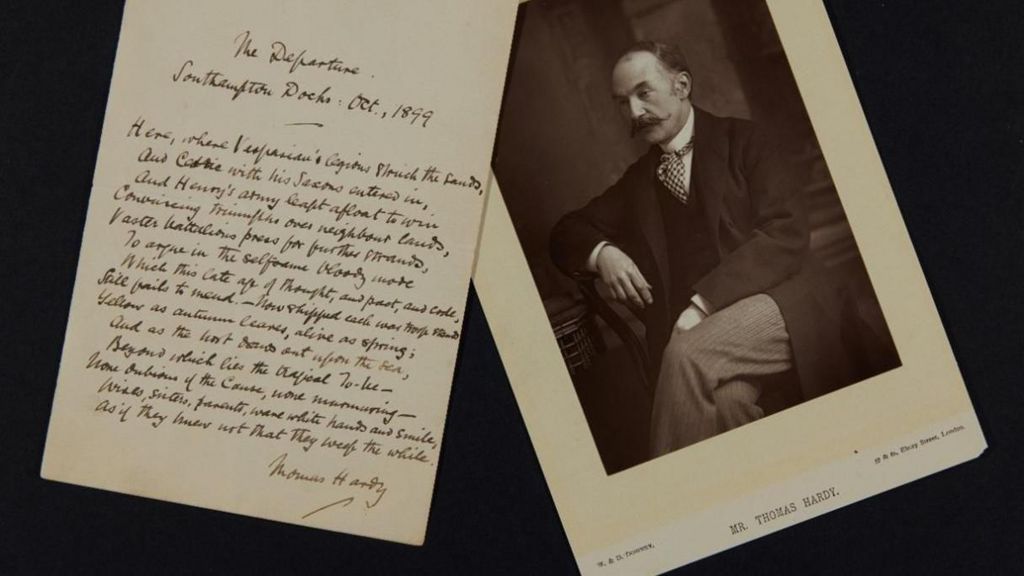 The Departure.
Southampton Docks: Oct., 1899
Here, where Vespasian's legions struck the sands,
And Cerdic with his Saxons entered in,
And Henry's army leapt afloat to win
Convincing triumphs over neighbour lands,
Vaster battalions press for further strands,
To argue in the selfsame bloody mode
Which this late age of thought, and pact, and code,
Still fails to mend. — Now shipped each war-troop stands
Yellow as autumn leaves, alive as spring;
And as the host draws out upon the sea,
Beyond which lies the tragical To-be —
None dubious of the Cause, none murmuring —
Wives, sisters, parents, wave white hands and smile,
As if they knew not that they weep the while.
Thomas Hardy
W. & D. DOWNEY,
57 & 61, Ebury Street, London.
MR. THOMAS HARDY.